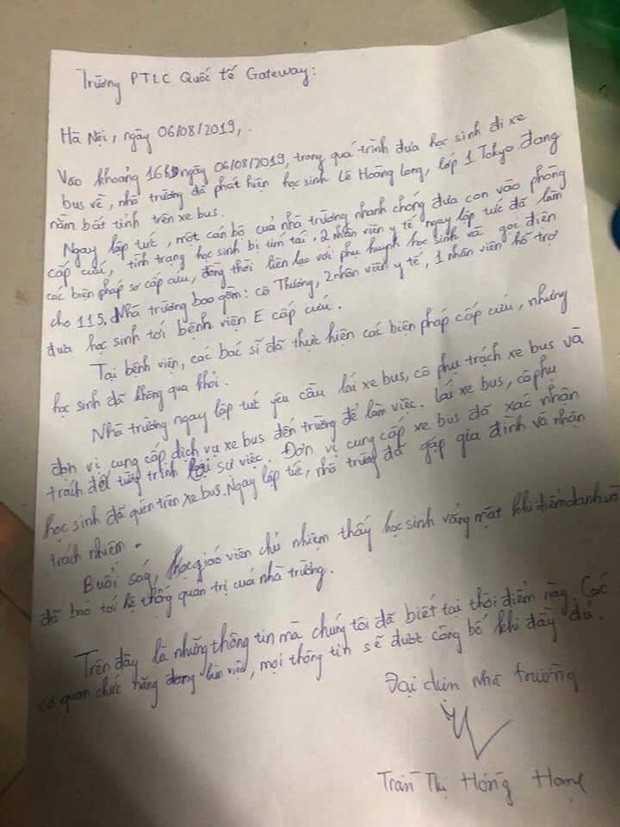 Trường PTLC Quốc tế Gateway:
Hà Nội, ngày 06/08/2019,
Vào khoảng 16h ngày 06/08/2019, trong quá trình đưa học sinh đi xe
bus về, nhà trường đã phát hiện học sinh Lê Hoàng Long, lớp 1 Tokyo đang
nằm bất tỉnh trên xe bus.
Ngay lập tức, một cán bộ của nhà trường nhanh chóng đưa con vào phòng
cấp cứu, tình trạng học sinh bị tím tái, 2 nhân viên y tế ngay lập tức đã làm
các biện pháp sơ cấp cứu, đồng thời liên lạc với phụ huynh học sinh và gọi điện
cho 115. Nhà trường bao gồm: cô Thường, 2 nhân viên y tế, 1 nhân viên hỗ trợ
đưa học sinh tới bệnh viện E cấp cứu.
Tại bệnh viện, các bác sĩ đã thực hiện các biện pháp cấp cứu, nhưng
học sinh đã không qua khỏi.
Nhà trường ngay lập tức yêu cầu lái xe bus, cô phụ trách xe bus và
đơn vị cung cấp dịch vụ xe bus đến trường để làm việc. Lái xe bus, cô phụ
trách để tường trình lại sự việc. Đơn vị cung cấp xe bus đã xác nhận
học sinh để quên trên xe bus. Ngay lập tức, nhà trường đã gặp gia đình và nhận
trách nhiệm.
Buổi sáng, giáo viên chủ nhiệm thấy học sinh vắng mặt khi điểm danh và
đã báo tới hệ thống quản trị của nhà trường.
Trên đây là những thông tin mà chúng tôi đã biết tại thời điểm này. Các
cơ quan chức năng đang làm việc, mọi thông tin sẽ được công bố khi đầy đủ.
Đại diện nhà trường
Trần Thị Hồng Hạnh